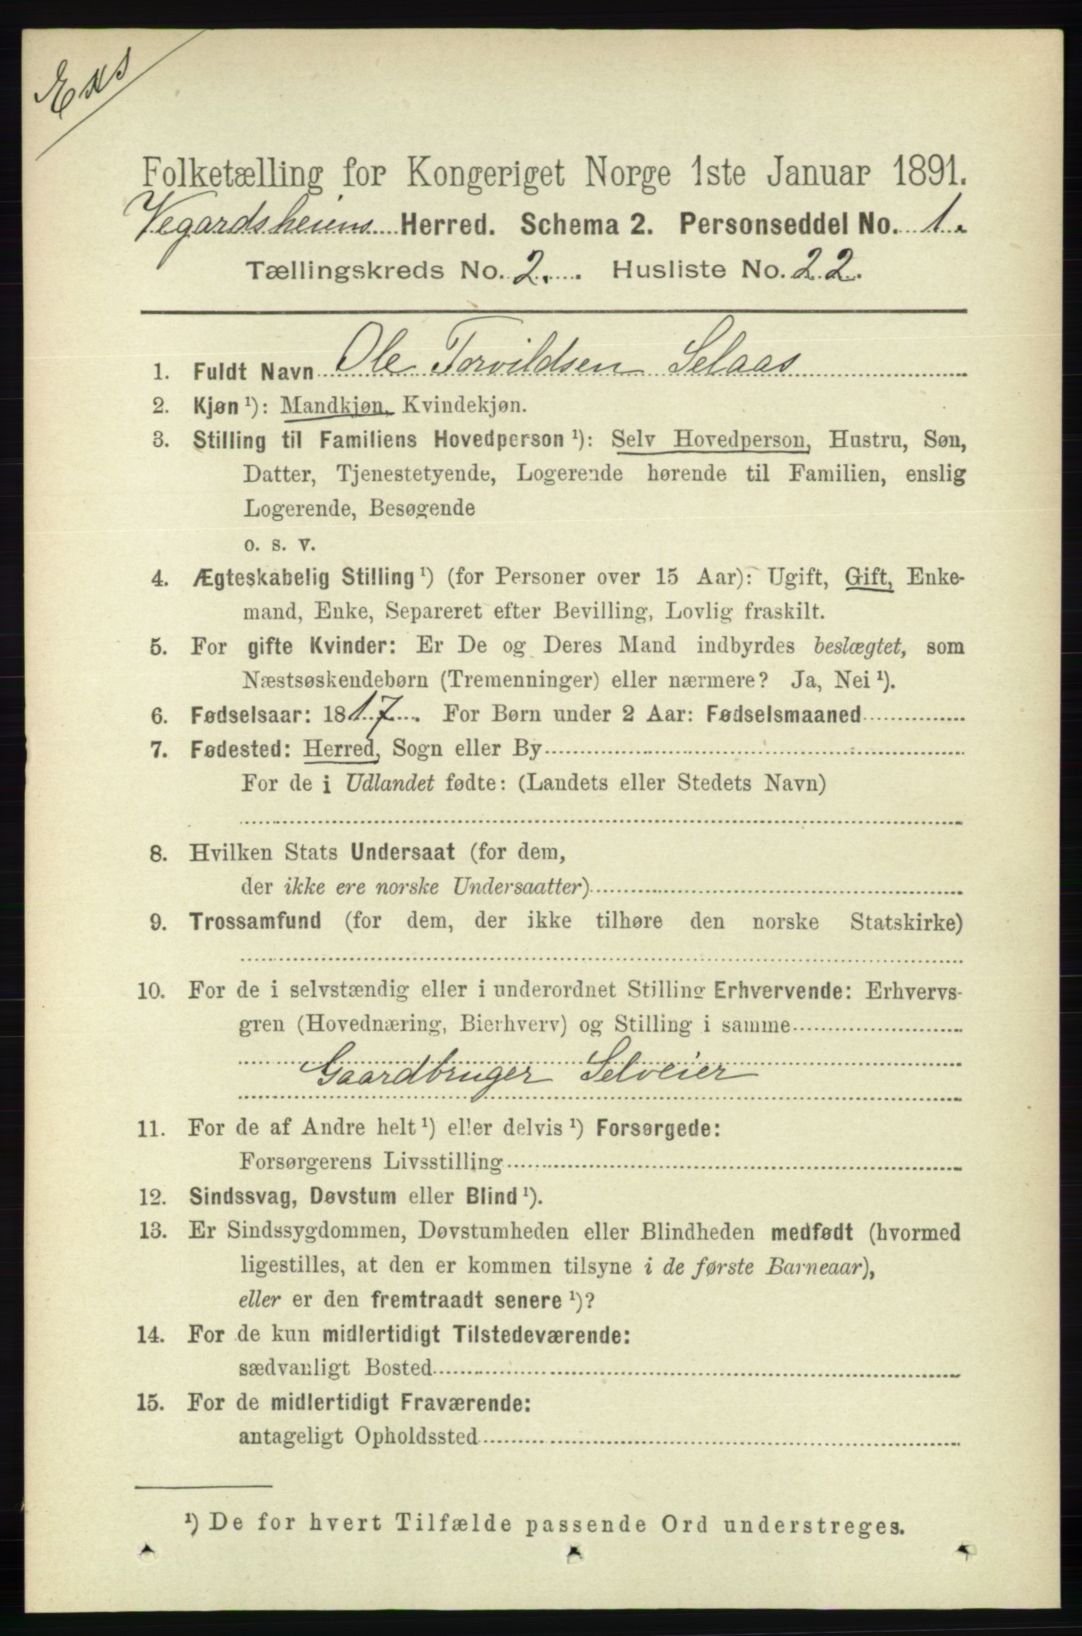 Folketælling for Kongeriget Norge 1ste Januar 1891.
Vegardsheiens Herred. Schema 2. Personseddel No. 1.
Tællingskreds No. 2. Husliste No. 22.
1. Fuldt Navn Ole Torvildsen Selaas
2. Kjøn ¹): Mandkjøn, Kvindekjøn.
3. Stilling til Familiens Hovedperson ¹): Selv Hovedperson, Hustru, Søn,
Datter, Tjenestetyende, Logerende hørende til Familien, enslig
Logerende, Besøgende
o. s. v.
4. Ægteskabelig Stilling ¹) (for Personer over 15 Aar): Ugift, Gift, Enke-
mand, Enke, Separeret efter Bevilling, Lovlig fraskilt.
5. For gifte Kvinder: Er De og Deres Mand indbyrdes beslægtet, som
Næstsøskendebørn (Tremenninger) eller nærmere? Ja, Nei ¹).
6. Fødselsaar: 1817. For Børn under 2 Aar: Fødselsmaaned
7. Fødested: Herred, Sogn eller By
For de i Udlandet fødte: (Landets eller Stedets Navn)
8. Hvilken Stats Undersaat (for dem,
der ikke ere norske Undersaatter)
9. Trossamfund (for dem, der ikke tilhøre den norske Statskirke)
10. For de i selvstændig eller i underordnet Stilling Erhvervende: Erhvervs-
gren (Hovednæring, Bierhverv) og Stilling i samme
Gaardbruger Selveier
11. For de af Andre helt ¹) eller delvis ¹) Forsørgede:
Forsørgerens Livsstilling
12. Sindssvag, Døvstum eller Blind ¹).
13. Er Sindssygdommen, Døvstumheden eller Blindheden medfødt (hvormed
ligestilles, at den er kommen tilsyne i de første Barneaar),
eller er den fremtraadt senere ¹)?
14. For de kun midlertidigt Tilstedeværende:
sædvanligt Bosted
15. For de midlertidigt Fraværende:
antageligt Opholdssted
¹) De for hvert Tilfælde passende Ord understreges.